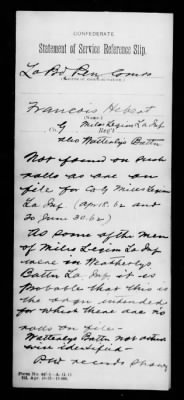 CONFEDERATE
Statement of Service Reference Slip.
La Bd Pen Comrs
Francois Hebert
(Name.)
Co. G Miles Legion La Inf
Reg't
also Weatherlys Battn
Not found on such
rolls as are on
file for Co G Miles Legion
La Inf (Apr 18. 62 and
to June 30. 62)
As some of the men
of Miles Legion La Inf
were in Weatherlys
Battn La Inf it is
probable that this is
the orgn intended
for which there are no
rolls on file—
Weatherlys Battn not other
wise identified—
PW records
Form No.